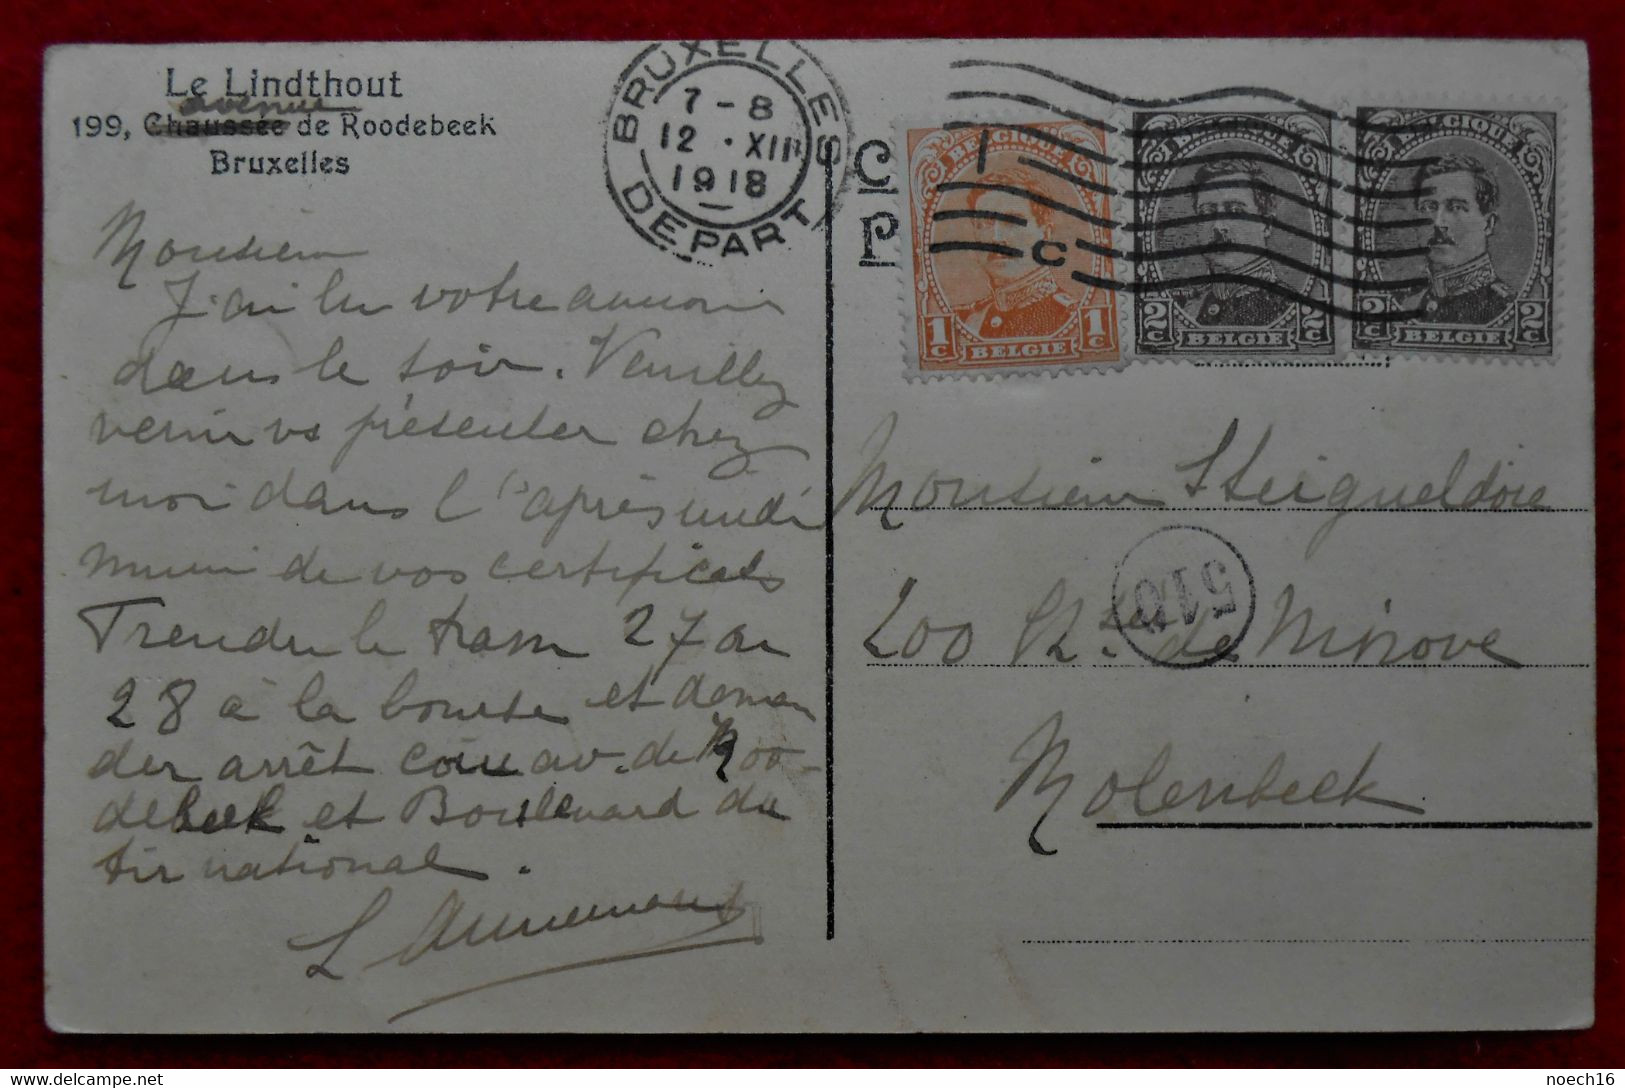 Le Lindthout
avenue
199, Chaussée de Roodebeek
Bruxelles
Monsieur
J'ai lu votre annonce
dans le soir. Veuillez
venir vs présenter chez
moi dans l'après midi
muni de vos certificats
Prendre le tram 27 ou
28 à la bourse et deman
der arrêt coin av. de Roo-
debeek et Boulevard du
tir national.
BRUXELLES
7-8
12 · XII
1918
DEPART
C
P
1
C
BELGIQUE
1c 1c
BELGIE
BELGIQUE
2c 2c
BELGIE
BELGIQUE
2c 2c
BELGIE
Monsieur
510
200 Ch. de Ninove
Molenbeek
noech16